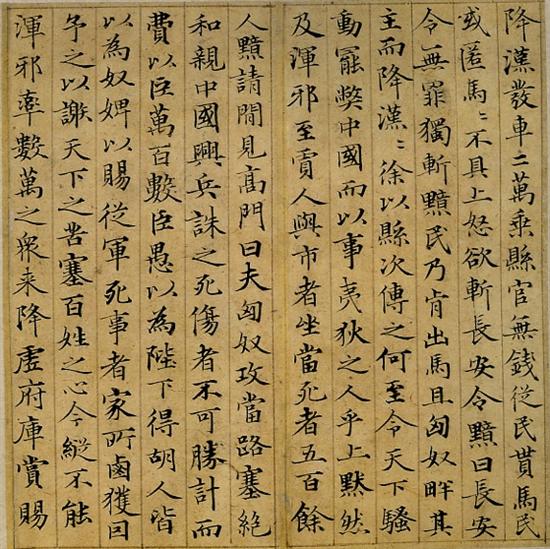 降漢發車二萬乘縣官無錢從民貰馬民
或匿馬〻不具上怒欲斬長安令黯曰長安
令無罪獨斬黯民乃肯出馬且匈奴畔其
主而降漢〻徐以縣次傳之何至令天下騷
動罷弊中國而以事夷狄之人乎上默然
及渾邪至賈人與市者坐當死者五百餘
人黯請閒見高門曰夫匈奴攻當路塞絕
和親中國興兵誅之死傷者不可勝計而
費以巨萬百數臣愚以為陛下得胡人皆
以為奴婢以賜從軍死事者家所鹵獲因
予之以謝天下之苦塞百姓之心今縱不能
渾邪率數萬之衆来降虛府庫賞賜